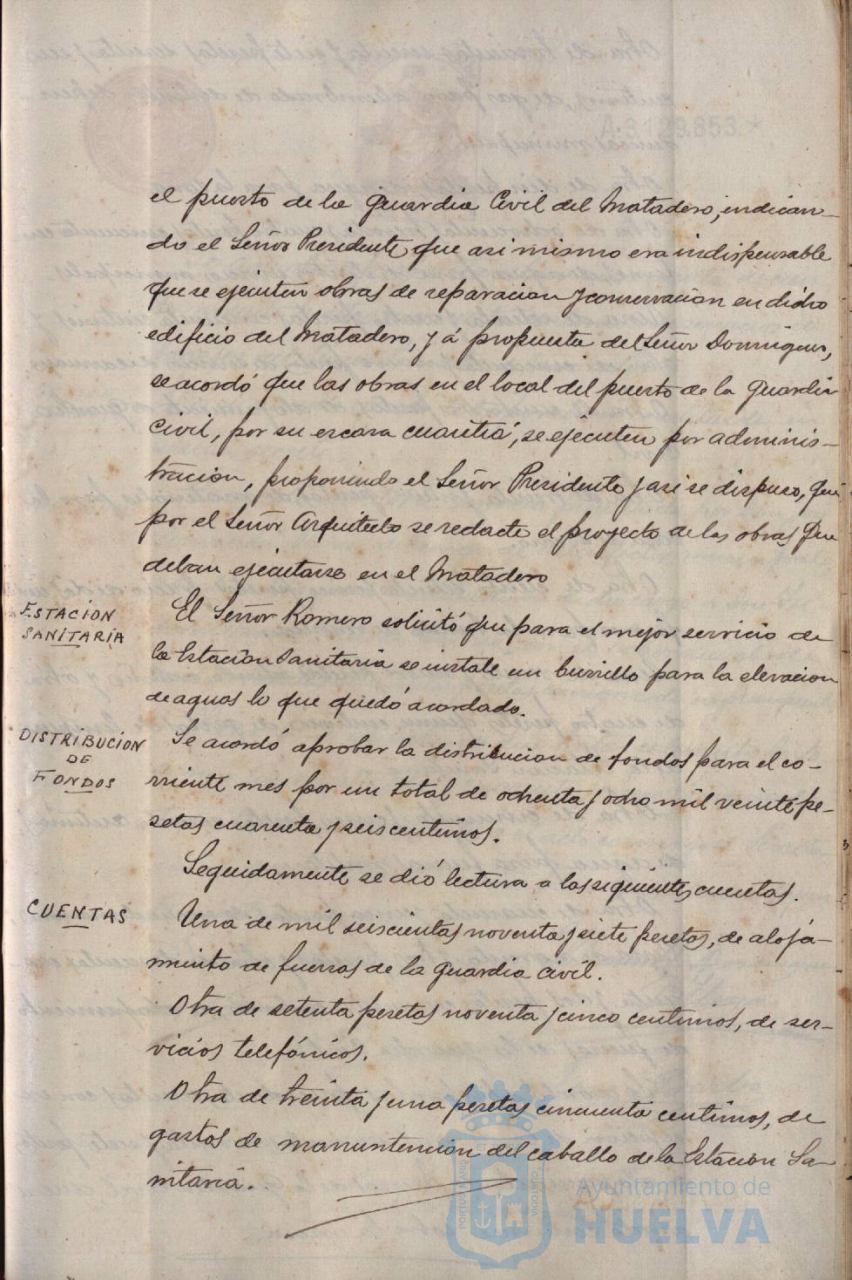 el puesto de la Guardia Civil del Matadero, indican-
do el Señor Presidente que asi mismo era indispensable
que se ejecuten obras de reparacion y conservacion en dicho
edificio del Matadero, y á propuesta del Señor Dominguez,
se acordó que las obras en el local del puesto de la Guardia
Civil, por su escasa cuantia, se ejecuten por adminis-
tracion, proponiendo el Señor Presidente y asi se dispuso, que
por el Señor Arquitecto se redacte el proyecto de las obras que
deban ejecutarse en el Matadero
ESTACION
SANITARIA
El Señor Romero solicitó que para el mejor servicio de
la Estacion Sanitaria se instale un burrillo para la elevacion
de aguas lo que quedó acordado.
DISTRIBUCION
DE
FONDOS
Se acordó aprobar la distribucion de fondos para el co-
rriente mes por un total de ochenta y ocho mil veinte pe-
setas cuarenta y seis centimos.
Seguidamente se dió lectura a las siguientes cuentas.
CUENTAS
Una de mil seiscientas noventa y siete pesetas, de aloja-
miento de fuerzas de la Guardia Civil.
Otra de setenta pesetas noventa y cinco centimos, de ser-
vicios telefónicos.
Otra de treinta y una pesetas cincuenta centimos, de
gastos de manuntención del caballo de la Estacion Sa-
nitaria.
Ayuntamiento de
HUELVA